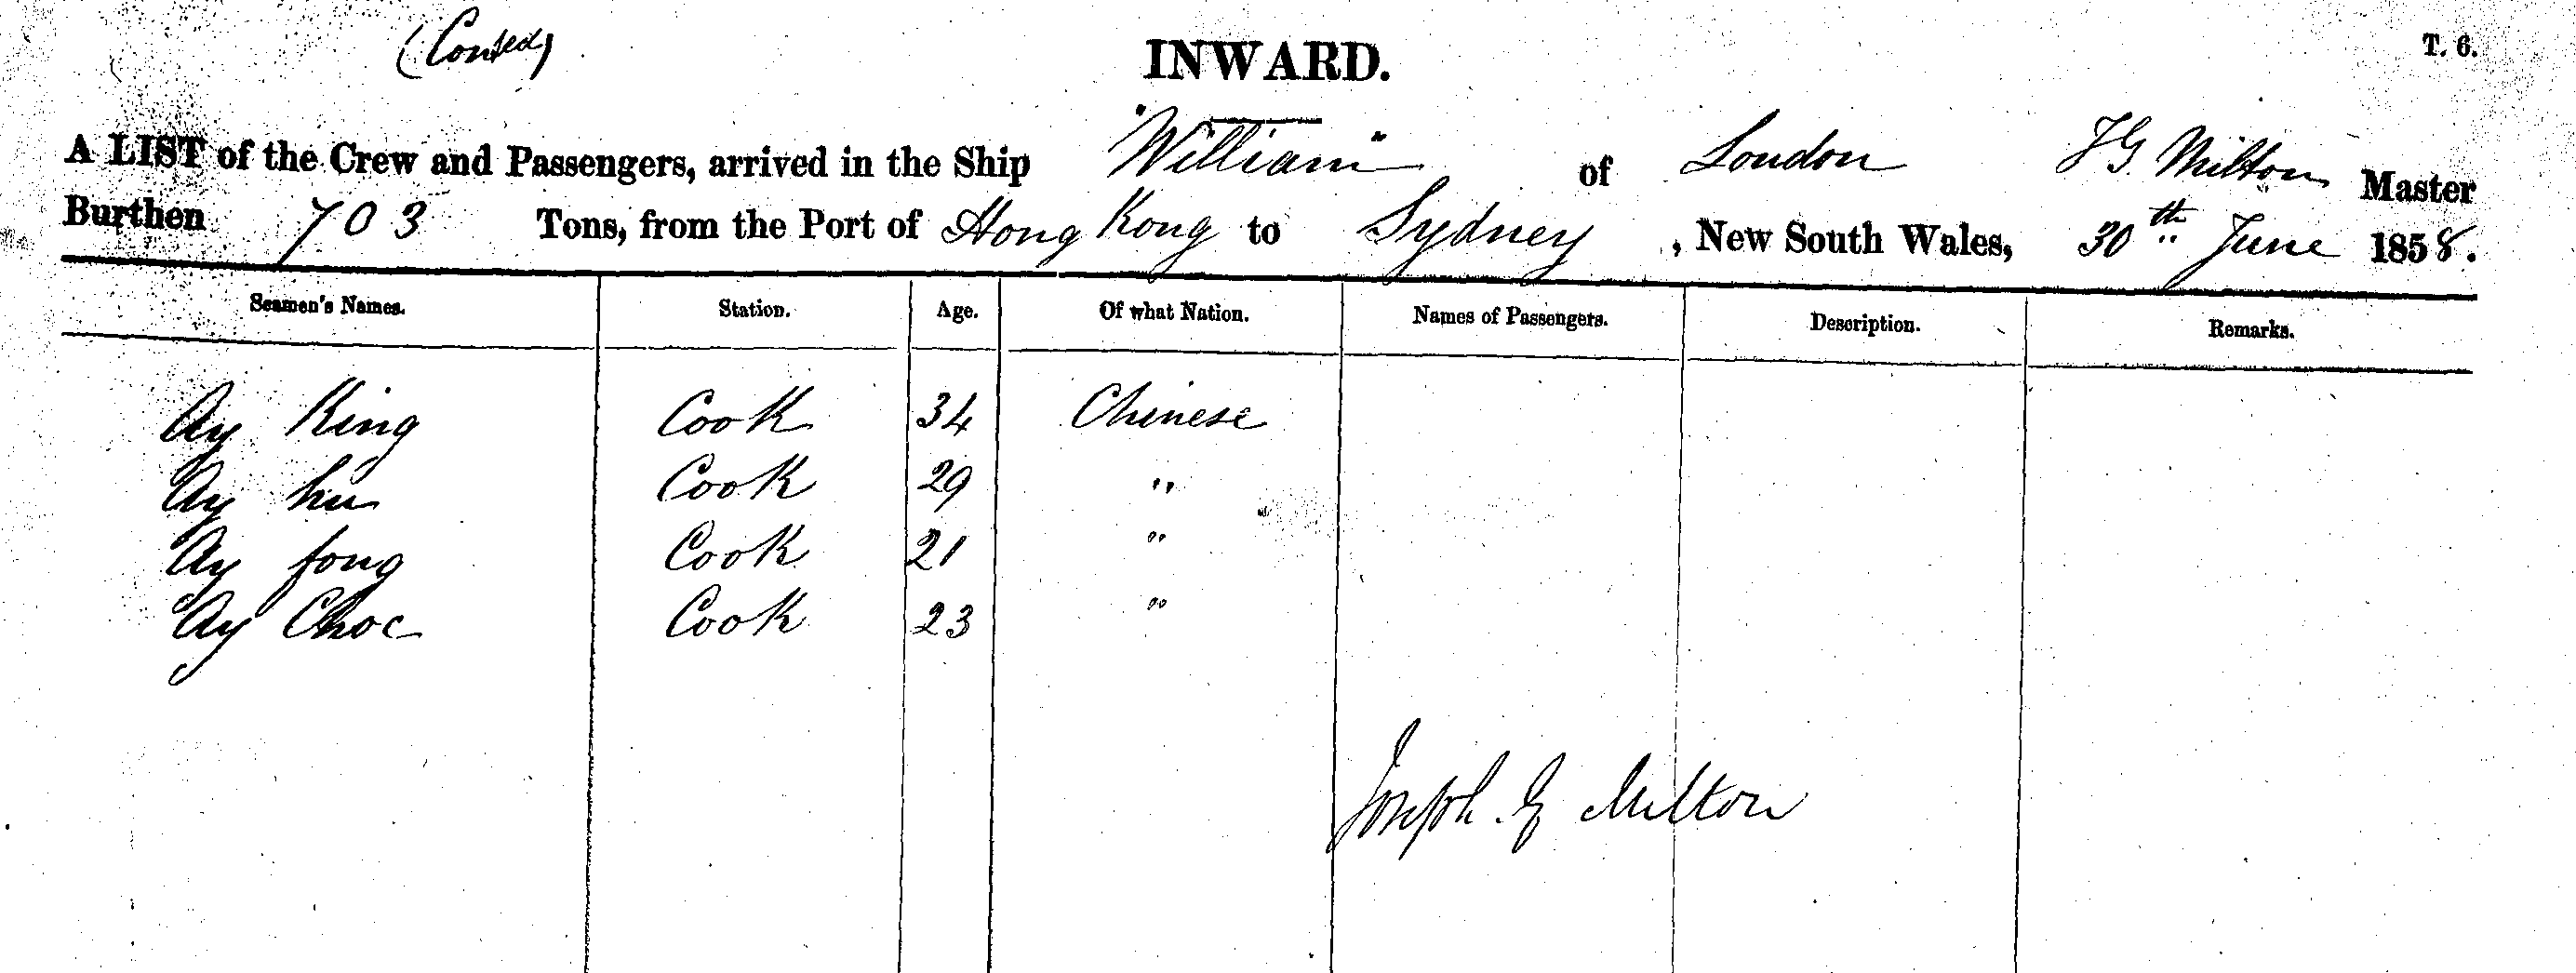 (Conted)
INWARD.
T. 6.
A LIST of the Crew and Passengers, arrived in the Ship "William" of London J G Milton Master
Burthen 703 Tons, from the Port of Hong Kong to Sydney, New South Wales, 30th June 1858.
Seamen's Names. Station. Age. Of what Nation. Names of Passengers. Description. Remarks.
Ay King Cook 34 Chinese
Ay Cook 29 "
Ay fong Cook 21 "
Ay Choc Cook 23 "
Joseph. G Milton